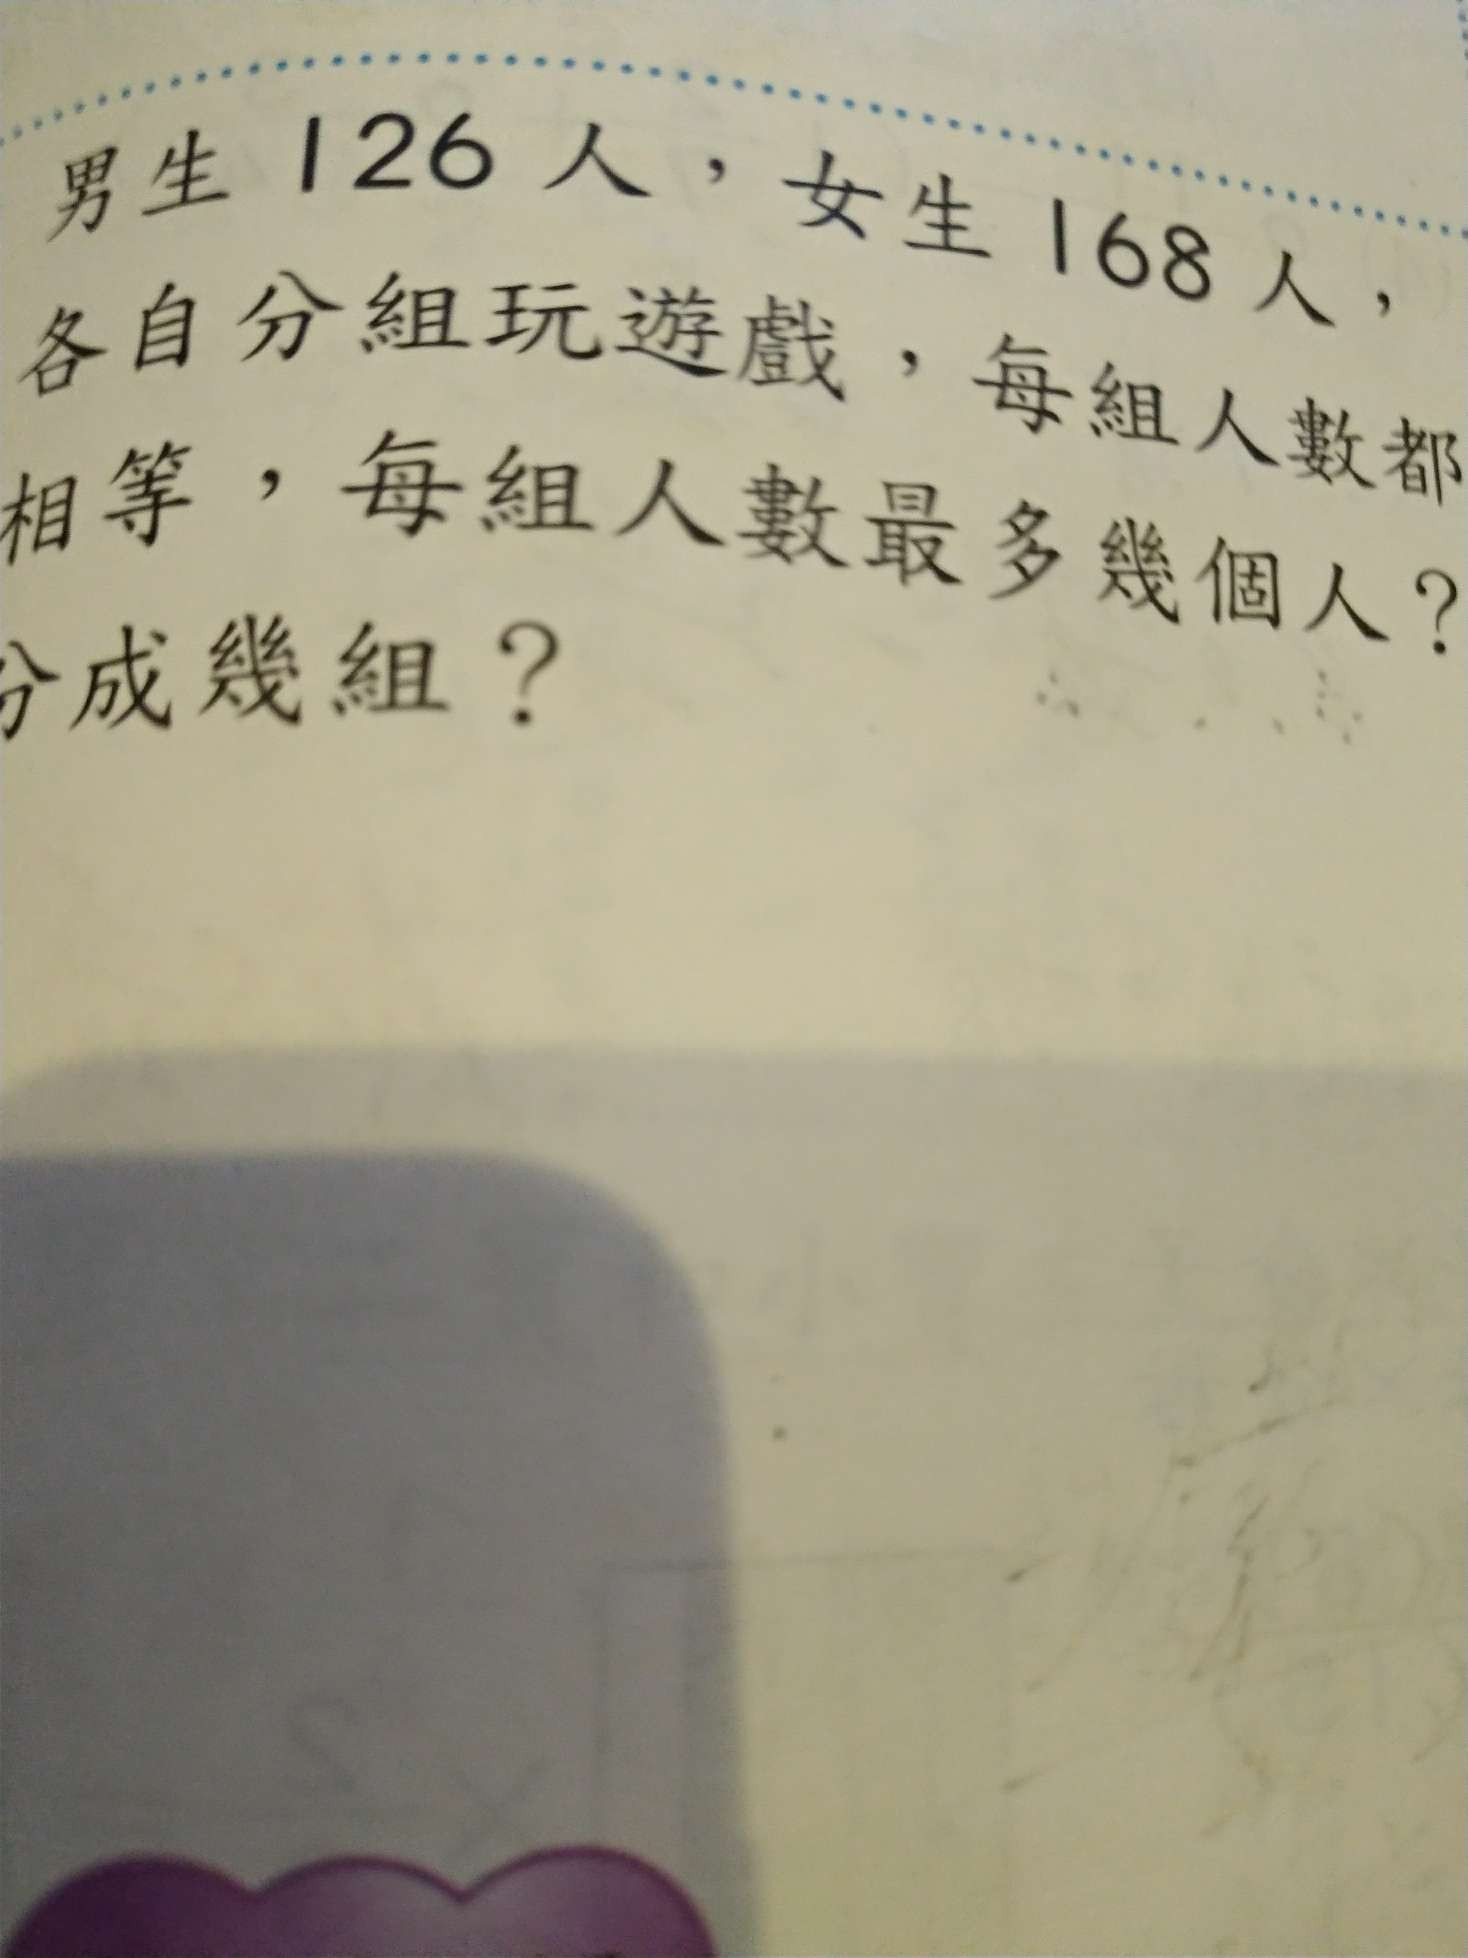 男生 126 人，女生 168 人，
各自分組玩遊戲，每組人數都
相等，每組人數最多幾個人？
分成幾組？